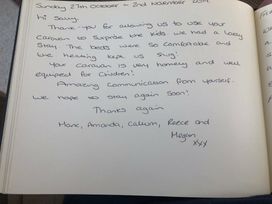 Sunday 27th October - 2nd November 2019
Hi Sauvy,
Thank you for allowing us to use your
caravan to surprise the kids we had a lovely
stay. The beds were so comfortable and
the heating kept us snug!
Your caravan is very homely and well
equiped for Children!
Amazing communication from yourself.
We hope to stay again soon!
Thanks again
Marc, Amanda, Callum, Reece and
Megan
xxx